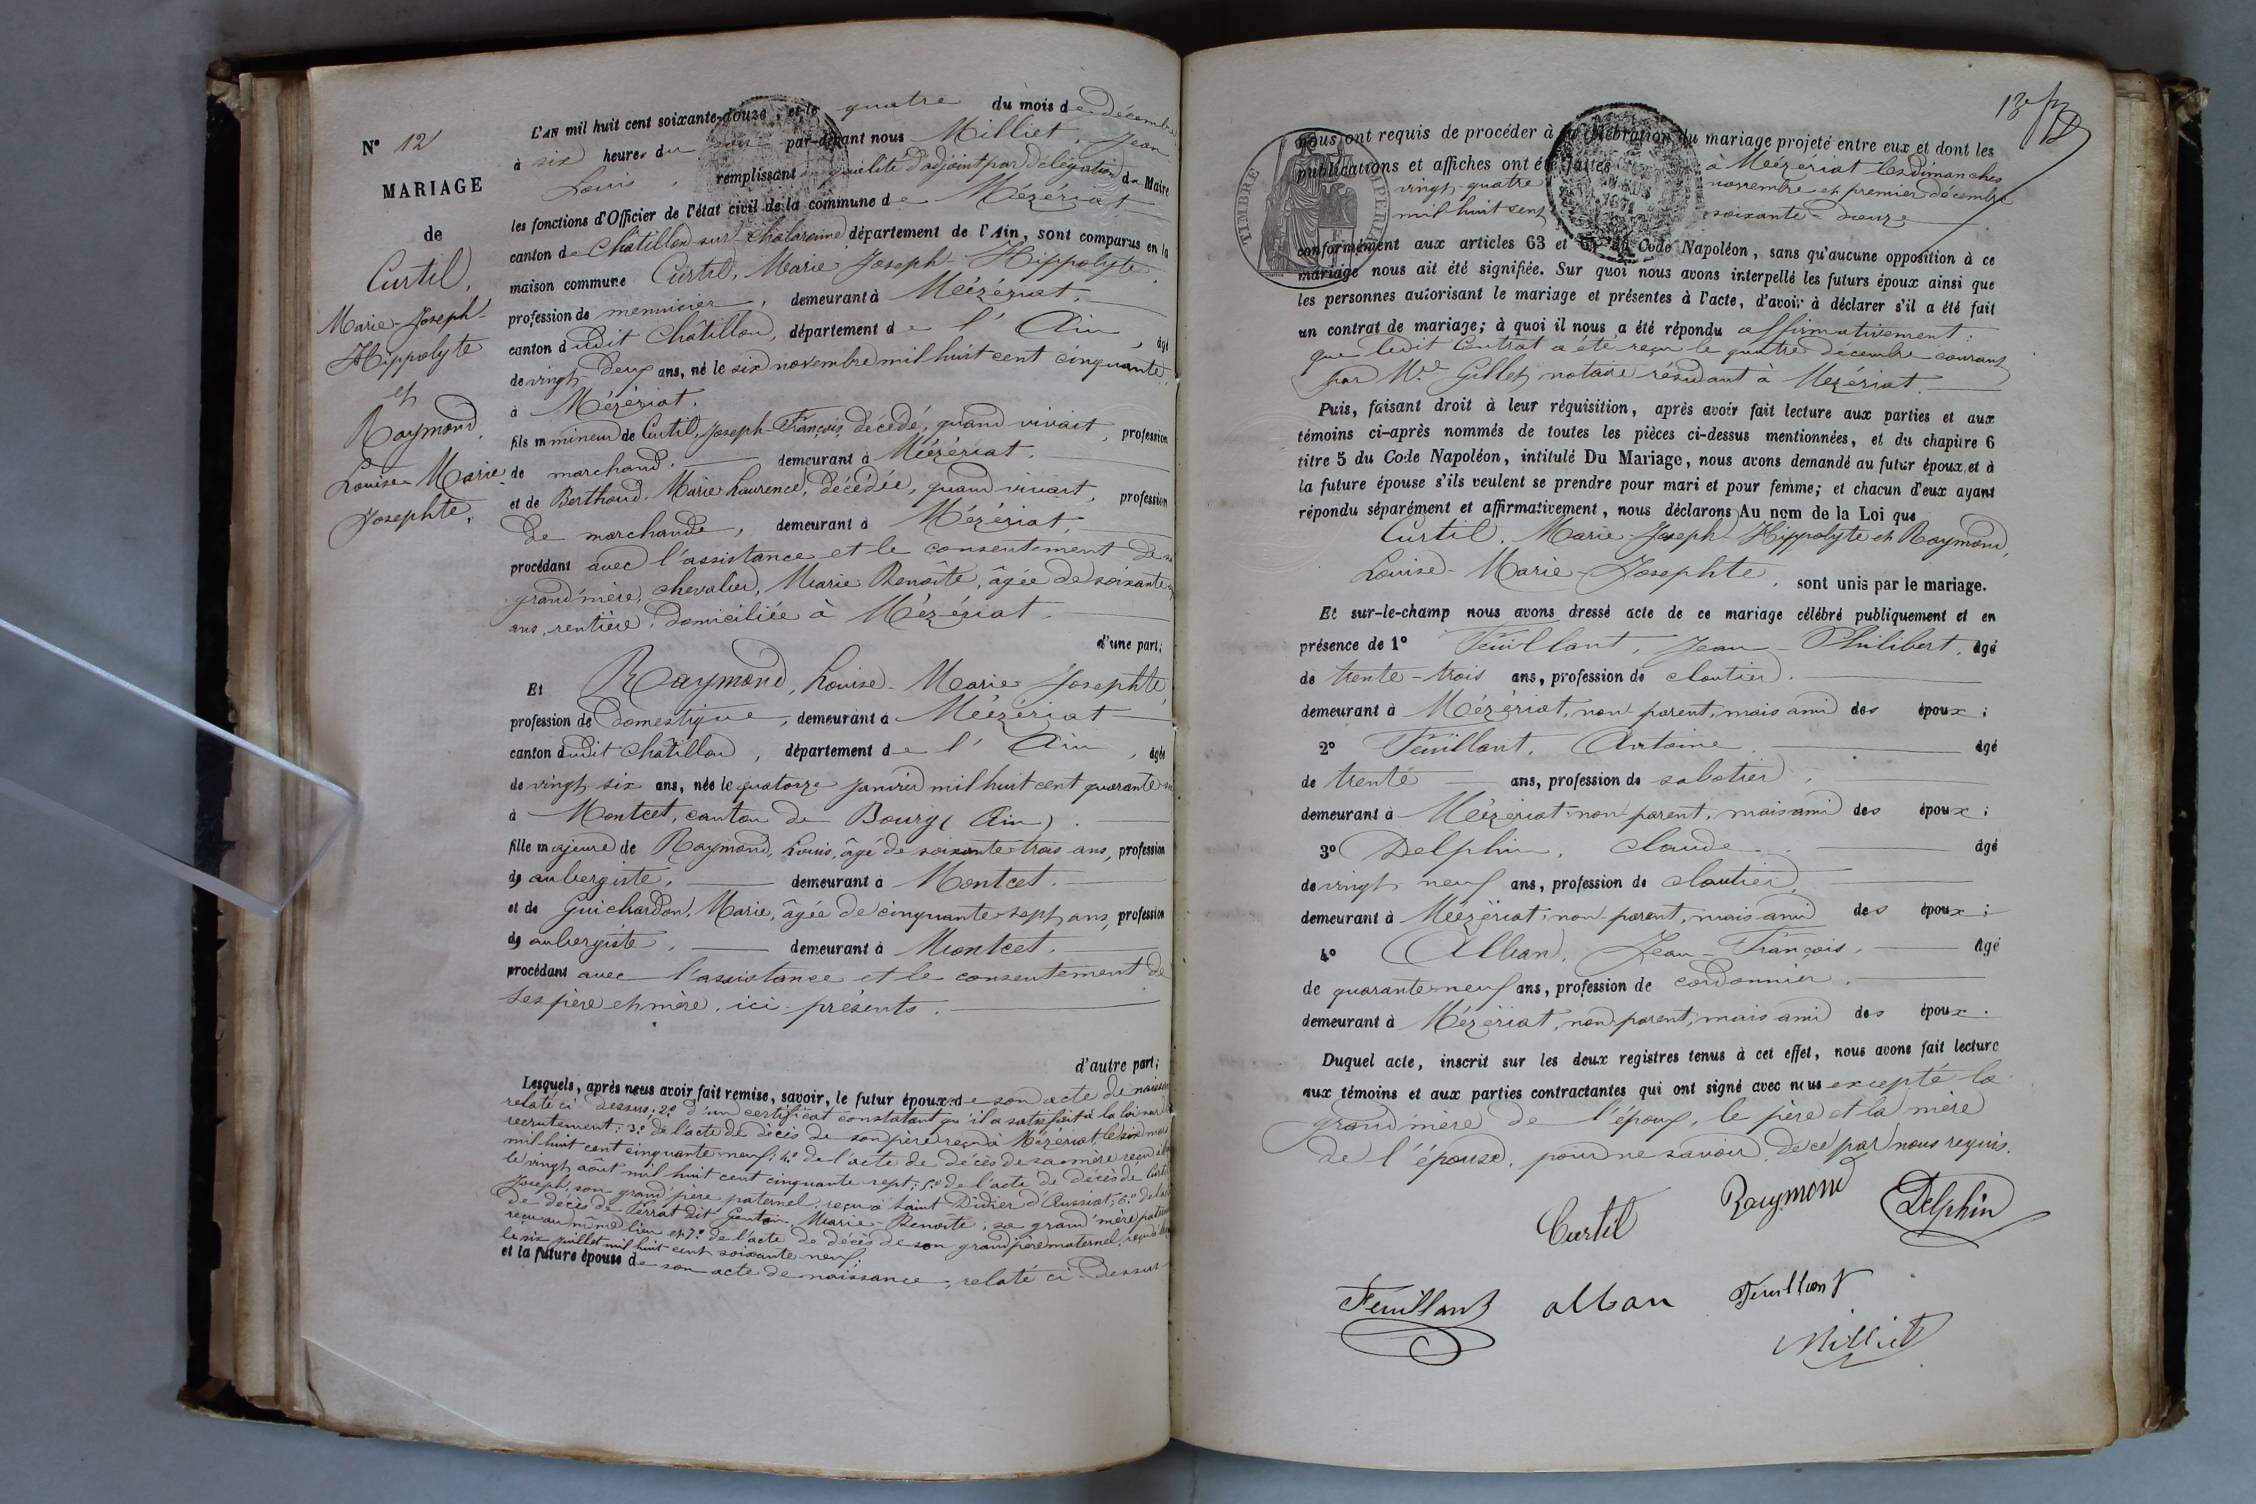 N° 12
MARIAGE
de
Curtil,
Marie-Joseph-
Hippolyte
et
Raymond,
Louise-Marie-
Josephte.
L'AN mil huit cent soixante-douze, et le quatre du mois de décembre
à six heures du soir par-devant nous Milliet, Jean
Louis, remplissant en qualité d'adjoint par délégation du Maire
les fonctions d'Officier de l'état civil de la commune de Mézériat
canton de Châtillon sur Chalaronne département de l'Ain, sont comparus en la
maison commune Curtil, Marie-Joseph-Hippolyte,
profession de menuisier, demeurant à Mézériat,
canton dudit Châtillon, département de l'Ain, âgé
de vingt-deux ans, né le six novembre mil huit cent cinquante
à Mézériat.
fils mineur de Curtil, Joseph-François, décédé, quand vivait, profession
de marchand. demeurant à Mézériat.
et de Berthoud, Marie Laurence, décédée, quand vivait, profession
de marchande, demeurant à Mézériat,
procédant avec l'assistance et le consentement de sa
grand'mère, chevalier, Marie Benoîte, âgée de soixante
ans, rentière, domiciliée à Mézériat.
d'une part;
Et Raymond, Louise-Marie-Josephte,
profession de Domestique, demeurant à Mézériat
canton dudit Châtillon, département de l'Ain, âgée
de vingt six ans, née le quatorze janvier mil huit cent quarante six
à Montcet, canton de Bourg (Ain).
fille majeure de Raymond, Louis, âgé de soixante trois ans, profession
de aubergiste, demeurant à Montcet.
et de Guichardon, Marie, âgée de cinquante sept ans, profession
de aubergiste, demeurant à Montcet.
procédant avec l'assistance et le consentement de
ses père et mère, ici présents.
d'autre part;
Lesquels, après nous avoir fait remise, savoir, le futur époux de son acte de naissance
relaté ci dessus; 2° d'un certificat constatant qu'il a satisfait à la loi sur le
recrutement; 3° de l'acte de décès de son père reçu à Mézériat, le six mars
mil huit cent cinquante neuf; 4° de l'acte de décès de sa mère reçu
le vingt août mil huit cent cinquante sept; 5° de l'acte de décès de Curtil
Joseph, son grand'père paternel, reçu à Saint Didier d'Aussiat; 6° de l'acte
de décès de Perrat dit Genton, Marie-Benoîte, sa grand'mère paternelle
reçu au même lieu et 7° de l'acte de décès de son grand père maternel, reçu
le six juillet mil huit cent soixante neuf;
et la future épouse de son acte de naissance, relaté ci-dessus
13e
TIMBRE IMPERIAL
nous ont requis de procéder à la célébration du mariage projeté entre eux et dont les
publications et affiches ont été faites à Mézériat les dimanches
vingt-quatre novembre et premier décembre
mil huit cent soixante-douze
conformément aux articles 63 et 64 du Code Napoléon, sans qu'aucune opposition à ce
mariage nous ait été signifiée. Sur quoi nous avons interpellé les futurs époux ainsi que
les personnes autorisant le mariage et présentes à l'acte, d'avoir à déclarer s'il a été fait
un contrat de mariage; à quoi il nous a été répondu affirmativement:
que ledit Contrat a été reçu le quatre décembre courant
par Me Gillet notaire résidant à Mézériat.
Puis, faisant droit à leur réquisition, après avoir fait lecture aux parties et aux
témoins ci-après nommés de toutes les pièces ci-dessus mentionnées, et du chapitre 6
titre 5 du Code Napoléon, intitulé Du Mariage, nous avons demandé au futur époux et à
la future épouse s'ils veulent se prendre pour mari et pour femme; et chacun d'eux ayant
répondu séparément et affirmativement, nous déclarons Au nom de la Loi que
Curtil, Marie-Joseph-Hippolyte et Raymond,
Louise-Marie-Josephte, sont unis par le mariage.
Et sur-le-champ nous avons dressé acte de ce mariage célébré publiquement et en
présence de 1° Feuillant, Jean-Philibert, âgé
de trente-trois ans, profession de cloutier.
demeurant à Mézériat, non parent, mais ami des époux;
2° Feuillant, Antoine. âgé
de trente ans, profession de sabotier,
demeurant à Mézériat non parent, mais ami des époux;
3° Delphin, Claude. âgé
de vingt neuf ans, profession de cloutier,
demeurant à Mézériat, non parent, mais ami des époux;
4° Alban, Jean-François, âgé
de quarante neuf ans, profession de cordonnier.
demeurant à Mézériat, non parent, mais ami des époux.
Duquel acte, inscrit sur les deux registres tenus à cet effet, nous avons fait lecture
aux témoins et aux parties contractantes qui ont signé avec nous excepté la
grand'mère de l'époux, le père et la mère
de l'épouse, pour ne savoir, de ce par nous requis.
Curtil Raymond Delphin
Feuillant alban Feuillant
Milliet